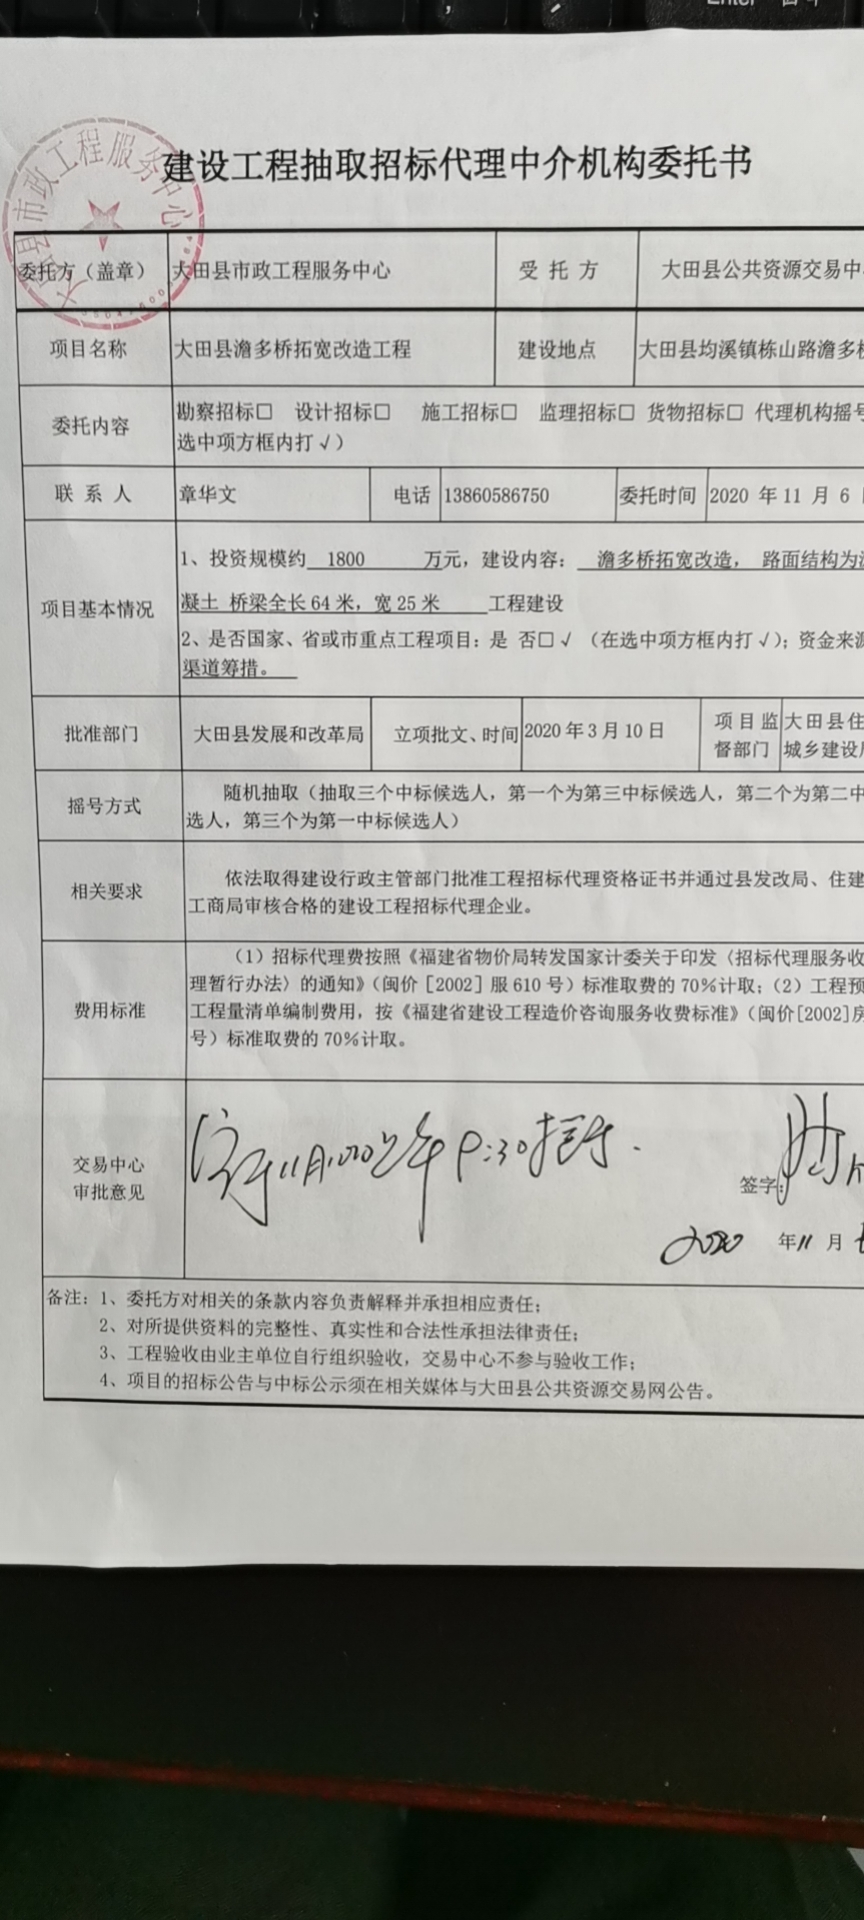 Enter
大田县市政工程服务中心
建设工程抽取招标代理中介机构委托书
委托方（盖章） 大田县市政工程服务中心 受 托 方 大田县公共资源交易中
项目名称 大田县澹多桥拓宽改造工程 建设地点 大田县均溪镇栋山路澹多桥
委托内容
勘察招标□ 设计招标□ 施工招标□ 监理招标□ 货物招标□ 代理机构摇号
选中项方框内打√）
联 系 人 章华文 电话 13860586750 委托时间 2020 年 11 月 6
项目基本情况
1、投资规模约 1800 万元，建设内容： 澹多桥拓宽改造， 路面结构为
凝土 桥梁全长 64 米，宽 25 米 工程建设
2、是否国家、省或市重点工程项目：是 否□√ （在选中项方框内打√）；资金来源
渠道筹措。
批准部门 大田县发展和改革局 立项批文、时间 2020 年 3 月 10 日 项目监督部门 大田县住
城乡建设
摇号方式
随机抽取（抽取三个中标候选人，第一个为第三中标候选人，第二个为第二中
选人，第三个为第一中标候选人）
相关要求
依法取得建设行政主管部门批准工程招标代理资格证书并通过县发改局、住建
工商局审核合格的建设工程招标代理企业。
费用标准
（1）招标代理费按照《福建省物价局转发国家计委关于印发〈招标代理服务收
理暂行办法〉的通知》（闽价［2002］服 610 号）标准取费的 70%计取；（2）工程预
工程量清单编制费用，按《福建省建设工程造价咨询服务收费标准》（闽价[2002]房
号）标准取费的 70%计取。
交易中心
审批意见
9:30摇号.
签字:
2020 年 11 月
备注：1、委托方对相关的条款内容负责解释并承担相应责任；
2、对所提供资料的完整性、真实性和合法性承担法律责任；
3、工程验收由业主单位自行组织验收，交易中心不参与验收工作；
4、项目的招标公告与中标公示须在相关媒体与大田县公共资源交易网公告。